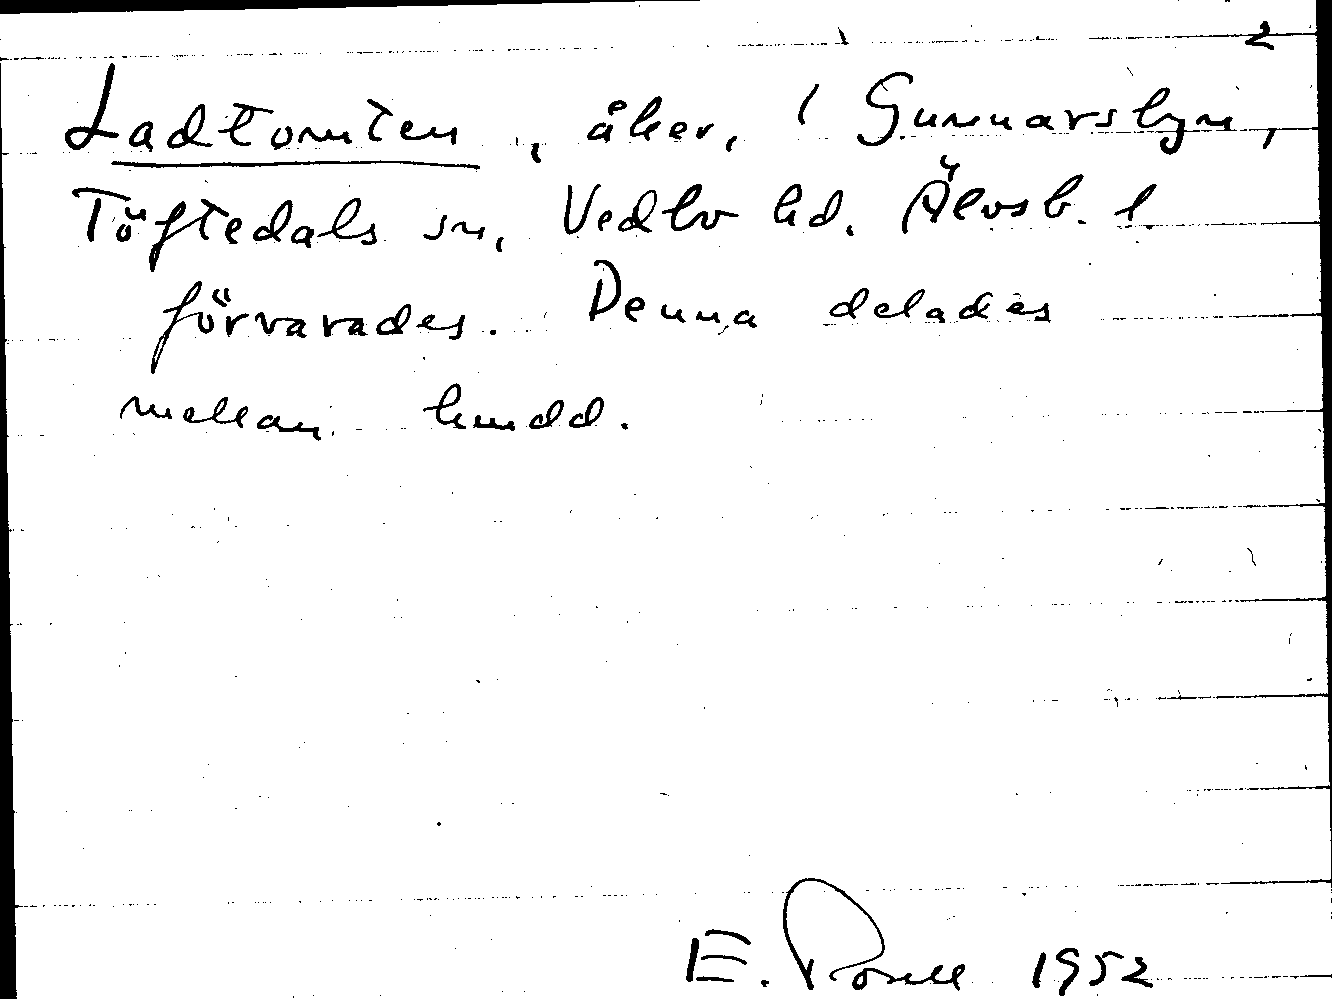 2
Ladtomten, åker, i Gunnarsbyn,
Töftedals sn, Vedbo hd. Älvsb. l.
förvarades. Denna delades
mellan
E. 1952